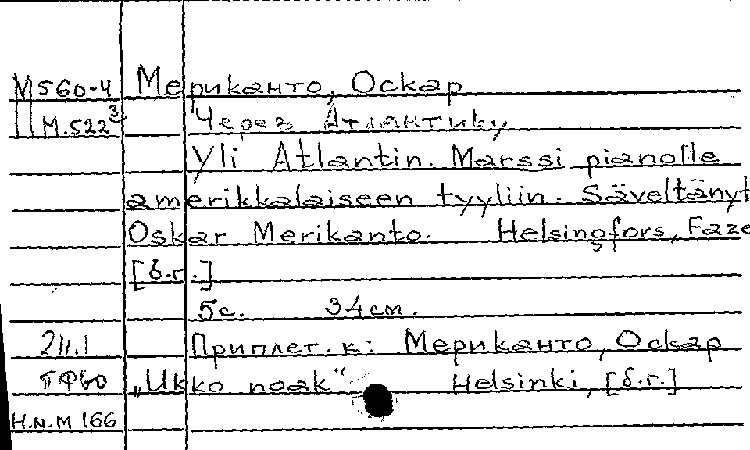 М560-4 Мериканто, Оскар
М.522³ Через Атлантику
Yli Atlantin. Marssi pianolle
amerikkalaiseen tyyliin. Säveltänyt
Oskar Merikanto. Helsingfors, Faze
[б.г.]
5с. 34см.
Приплет. к: Мериканто, Оскар
„Ukko noak“ Helsinki, [б.г.]
Н.N.M 166